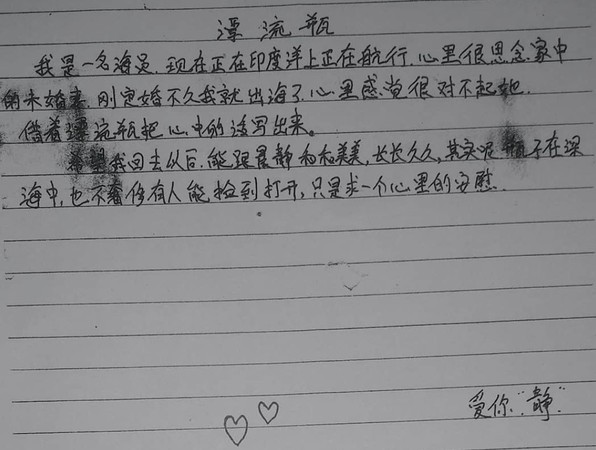 漂流瓶
我是一名海员.现在正在印度洋上正在航行.心里很思念家中
的未婚妻.刚定婚不久我就出海了.心里感觉很对不起她.
借着漂流瓶把心中的话写出来。
希望我回去以后.能跟晨静和和美美.长长久久,其实呢瓶子在深
海中,也不奢侈有人能捡到打开,只是求一个心里的安慰.
爱你"静"